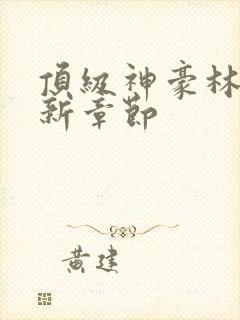 頂級神豪林
新章節
黃建